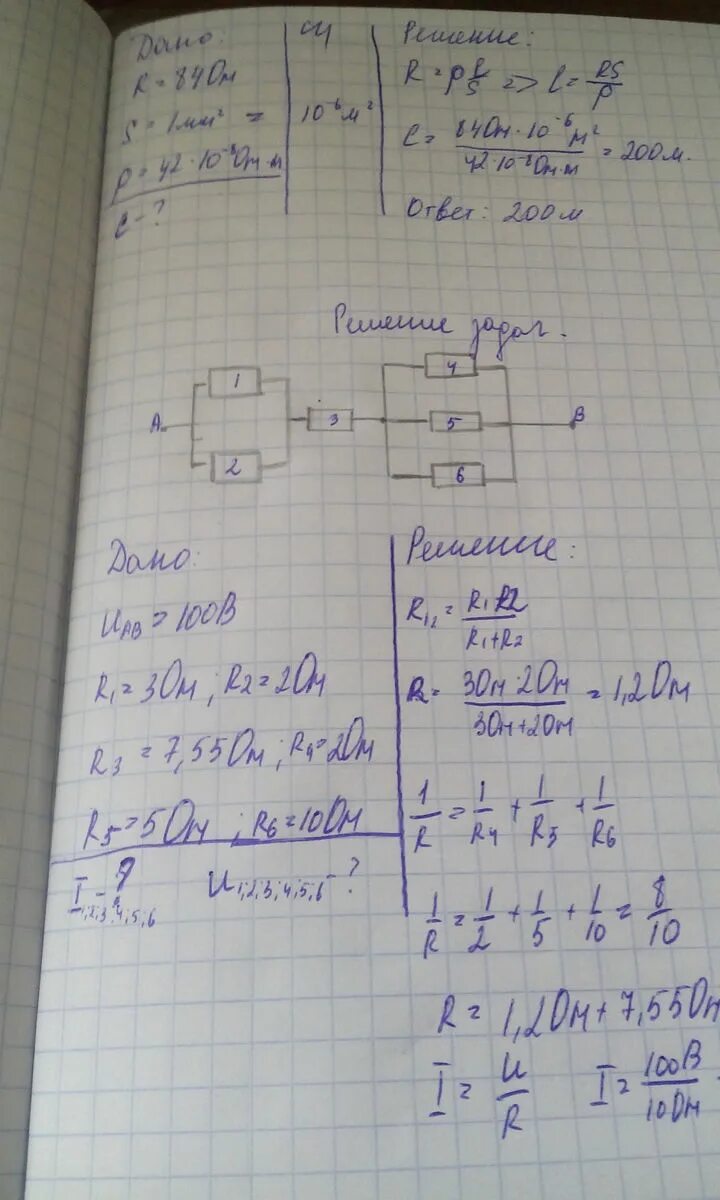 Дано:
СИ
Решение:
R = 84Ом
R = ρ l/S => l = RS/ρ
S = 1мм² =
10⁻⁶м²
ρ = 42·10⁻⁸Ом·м
l = 84Ом·10⁻⁶м² / 42·10⁻⁸Ом·м = 200м.
l - ?
Ответ: 200м
Решение задач.
A
1
2
3
4
5
6
B
Дано:
U_AB = 100В
R₁ = 3Ом ; R₂ = 2Ом
R₃ = 7,55Ом ; R₄ = 2Ом
R₅ = 5Ом ; R₆ = 10Ом
I₁;₂;₃;₄;₅;₆ - ? U₁;₂;₃;₄;₅;₆ - ?
Решение:
R₁₂ = R₁R₂ / R₁+R₂
R = 3Ом·2Ом / 3Ом+2Ом = 1,2Ом
1/R = 1/R₄ + 1/R₅ + 1/R₆
1/R = 1/2 + 1/5 + 1/10 = 8/10
R = 1,2Ом + 7,55Ом
I = U/R I = 100В/10Ом